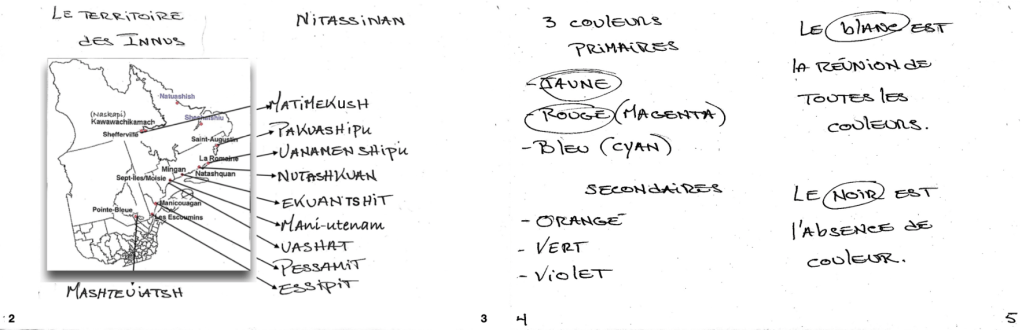 LE TERRITOIRE
des INNUS
Natuashish
Sheshatshiu
(Naskapi)
Kawawachikamach
Shefferville
Saint-Augustin
La Romaine
Mingan
Natashquan
Sept-Iles/Moisie
Manicouagan
Pointe-Bleue
Les Escoumins
MASHTEUIATSH
2
NITASSINAN
MATIMEKUSH
PAKUASHIPU
UANAMEN SHIPU
NUTASHKUAN
EKUANTSHIT
MANi-utenam
UASHAT
PESSAMIT
ESSIPIT
3
3 COULEURS
PRIMAIRES
- JAUNE
- ROUGE (MAGENTA)
- BLEU (CYAN)
SECONDAIRES
- ORANGÉ
- VERT
- VIOLET
4
LE blANC EST
lA RÉUNION de
TOUTES lES
COULEURS.
LE NOIR EST
l'AbSENCE de
COULEUR.
5